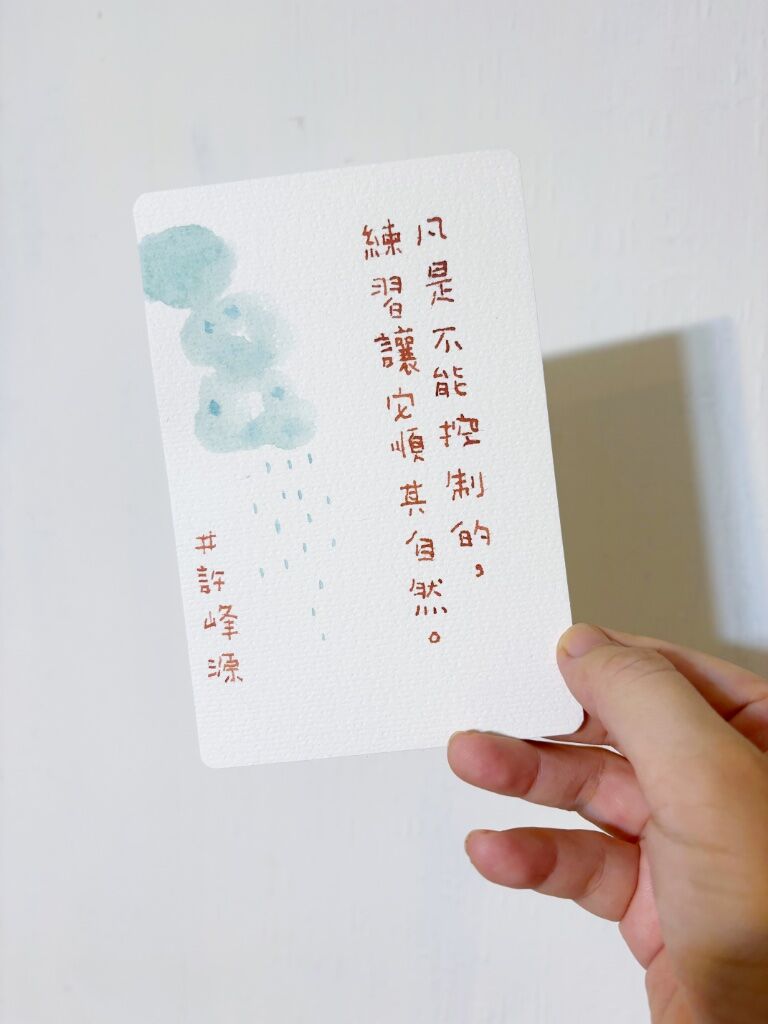 凡是不能控制的，
練習讓它順其自然。
#許峰源